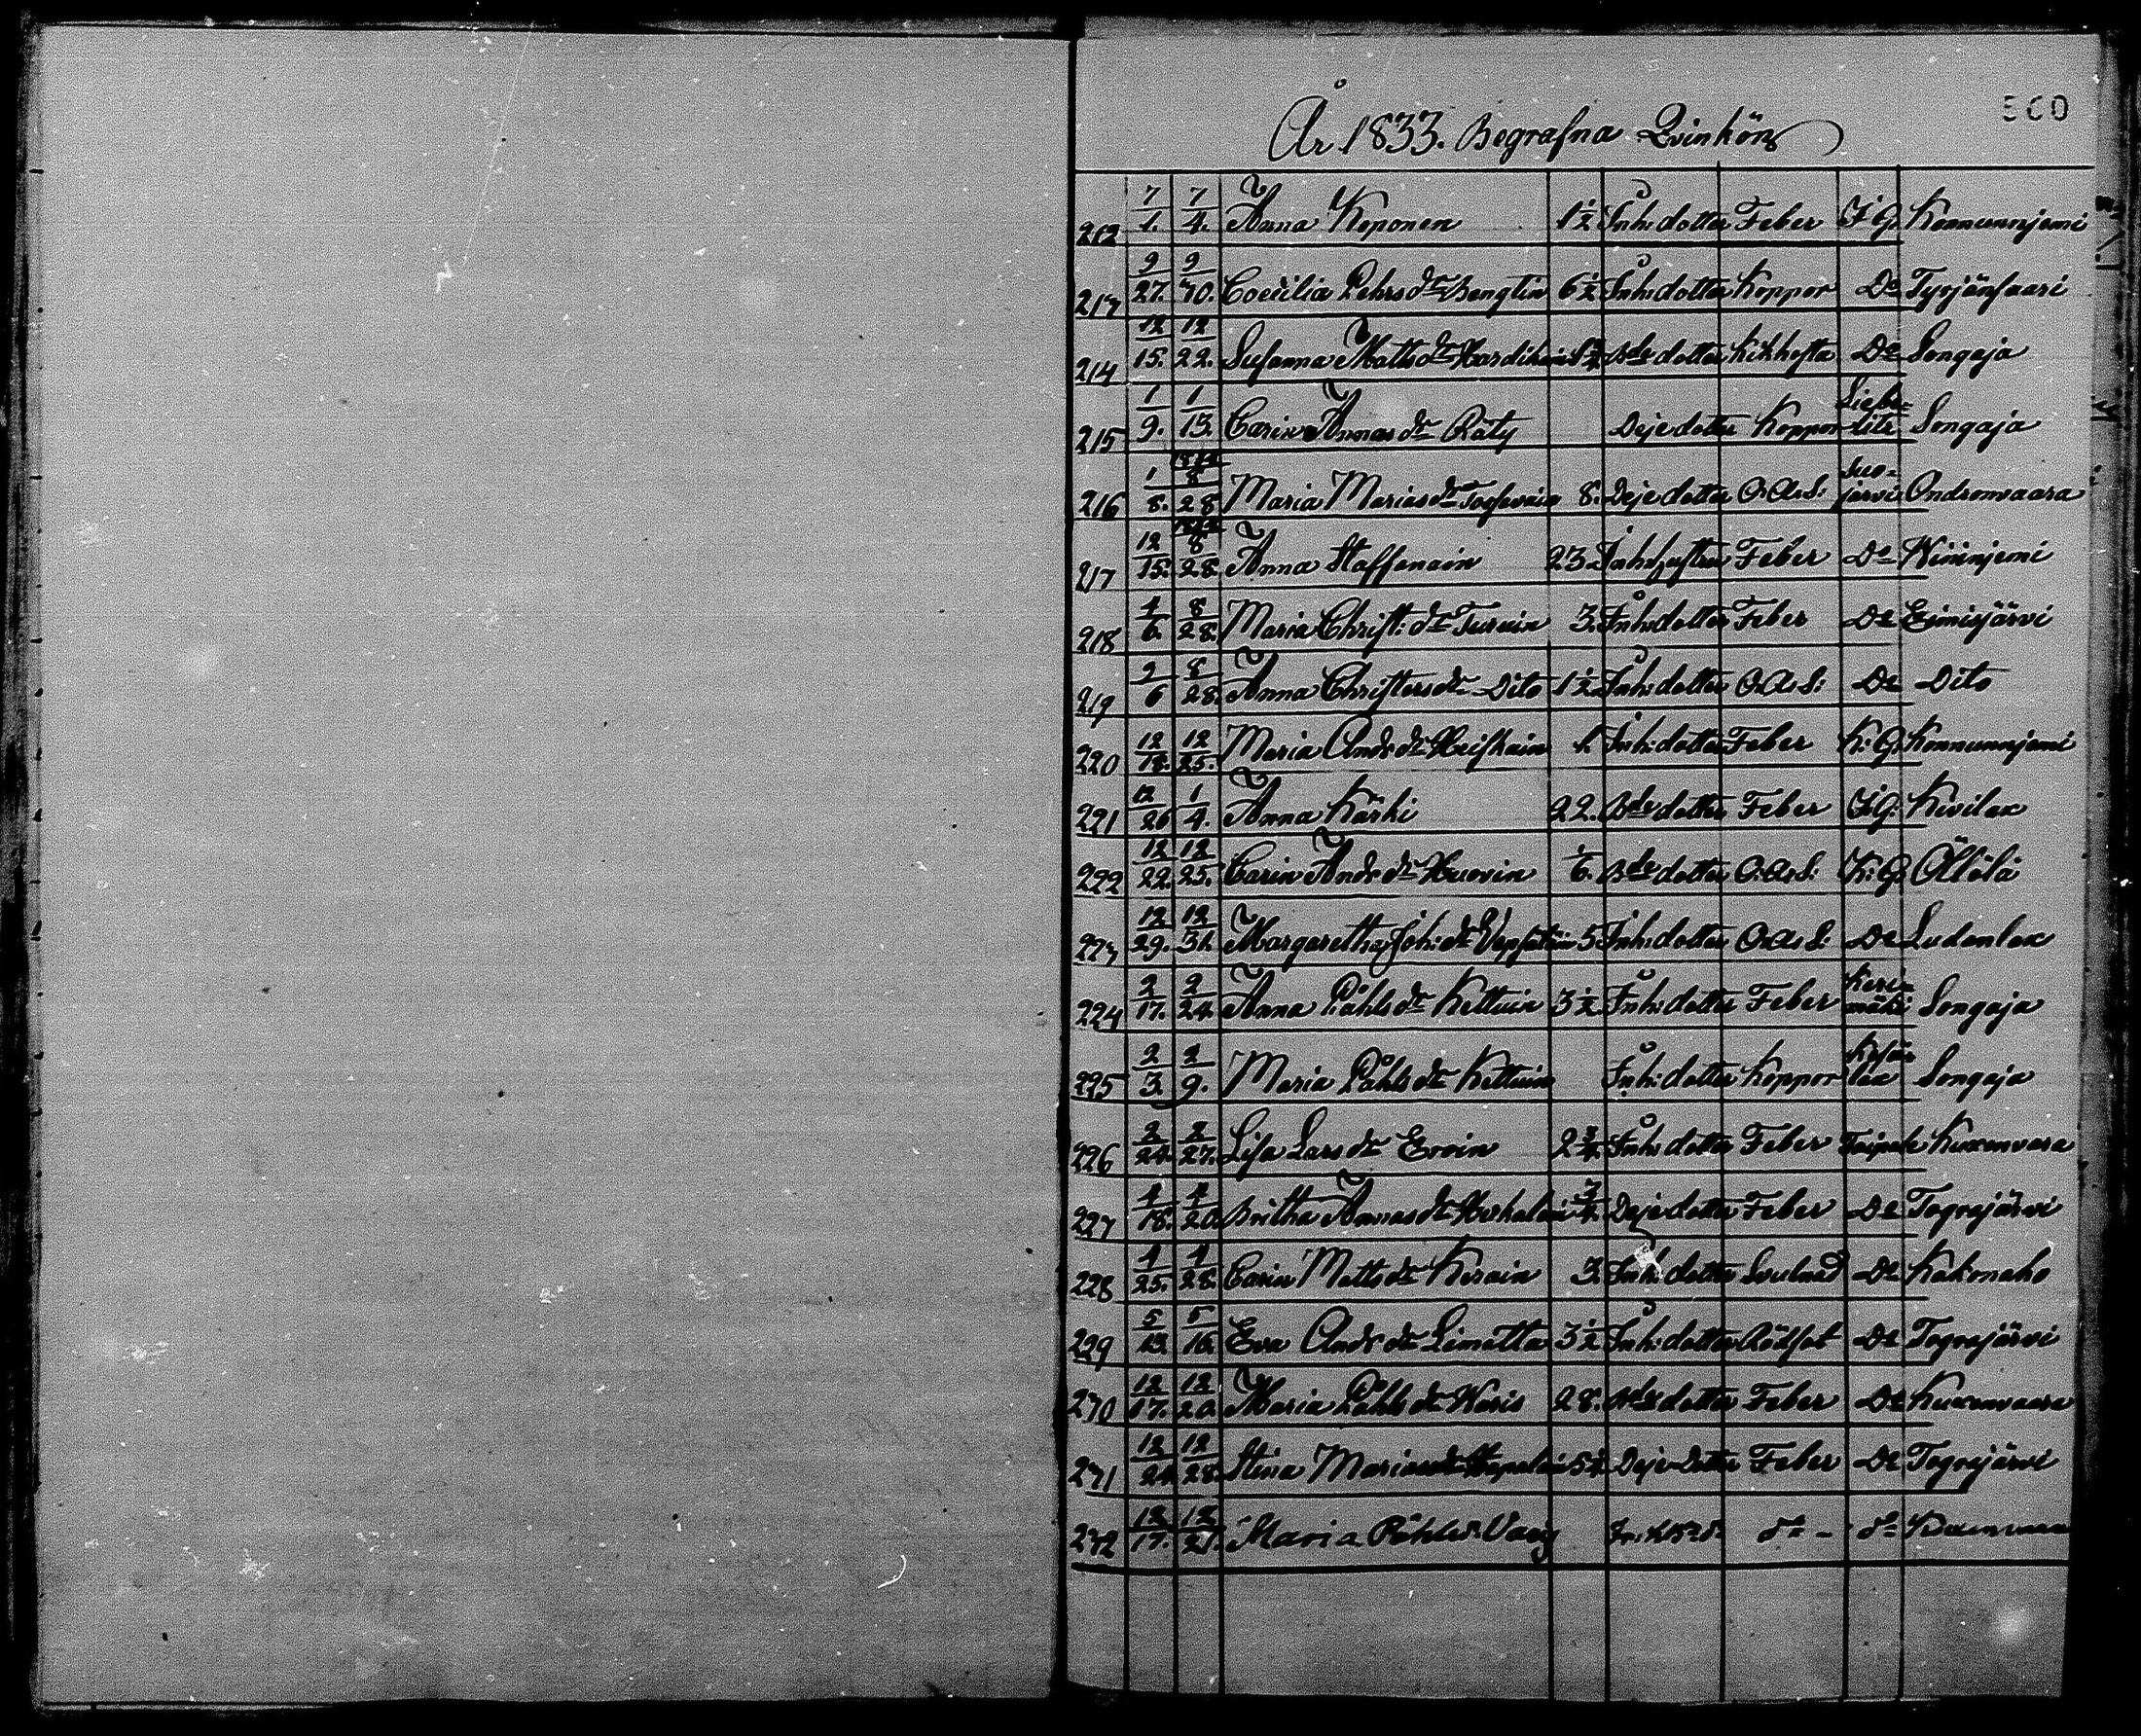 560
År 1833. Begrafna Qvinkön
212 7/1. 7/4. Anna Koponen 1 1/2 Inh: dotter Feber K: G. Konnunnjemi
213 9/27. 9/30. Coecilia Pehrs dr Bengtin 6 1/2 Inh: dotter Koppor Do Tyrjänsaari
214 12/15. 12/22. Susanna Matts dr Bde dotter Kikhosta Do Songaja
215 1/9. 1/13. Carin Annas dr Räty Deje dotter Koppor Liebelits Songaja
216 1/8. 8/28 Maria Marias dr 8. Deje dotter O: A: S: Suojärvi Ondronvaara
217 12/15. 8/28. Anna Staffanain 23. Inh: hustru Feber Do
218 4/6. 8/28. Maria Christ: dr Turuin 3. Inh: dotter Feber Do Eimisjärvi
219 2/6 8/28. Anna Christers dr Dito 1 1/2 Inh: dotter O: A: S: Do Dito
220 12/18. 12/25. Maria Andr dr Heiskain 1. Inh: dotter Feber K: G. Konnunnjemi
221 12/26 1/4. Anna Kärki 22. Bde dotter Feber K: G: Kivilax
222 12/22. 12/25. Carin Andr dr Huovin 1/6. Bde dotter O: A: S: K: G. Ällölä
223 12/29. 12/31. Margaretha Joh: dr 5 Inh: dotter O: A: S: Do Ludenlax
224 2/17. 2/24. Anna Påhls dr Kettuin 3 1/2 Inh: dotter Feber Kerimäki Songaja
225 2/3. 2/9. Maria Påhls dr Kettuin Inh: dotter Koppor Songaja
226 2/24. 2/27. Lisa Lars dr Ervin 2 3/4. Inh: dotter Feber Taipale Kuxenvara
227 4/18. 4/20. Britha Annas dr Deje dotter Feber Do Togrejärvi
228 4/25. 4/28. Carin Matts dr Kerain 3. Inh: dotter Svulnad Do Kakonaho
229 5/13. 5/16. Eva Andr dr Limatta 3 1/2 Inh: dotter Rödsot Do Togrejärvi
230 12/17. 12/20. Maria Påhls dr Waris 28. Bde dotter Feber Do Kuxenvaara
231 12/24. 12/28. Stina Marias dr Deje Dotter Feber Do Togrejärvi
232 12/17. 12/21. Maria Påhls dr do - do